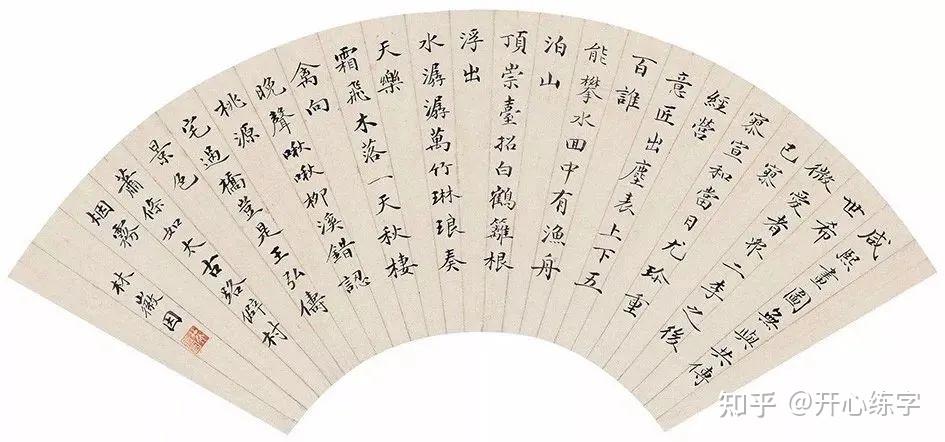 咸熙畫圖無與共傳
世希
微受者衆二李之後
已寡
寥宣和當日尤珍重
經營
意匠出塵表上下五
百誰
能攀水回中有漁舟
泊山
頂崇臺招白鶴籬根
浮出
水潺潺萬竹琳琅奏
天樂
霜飛木落一天秋棲
禽向
晚聲啾啾柳溪錯認
桃源
宅過橋豈是王弘儔
景色
蕭條如太古路僻村
烟霧
林薇因
知乎 @开心练字